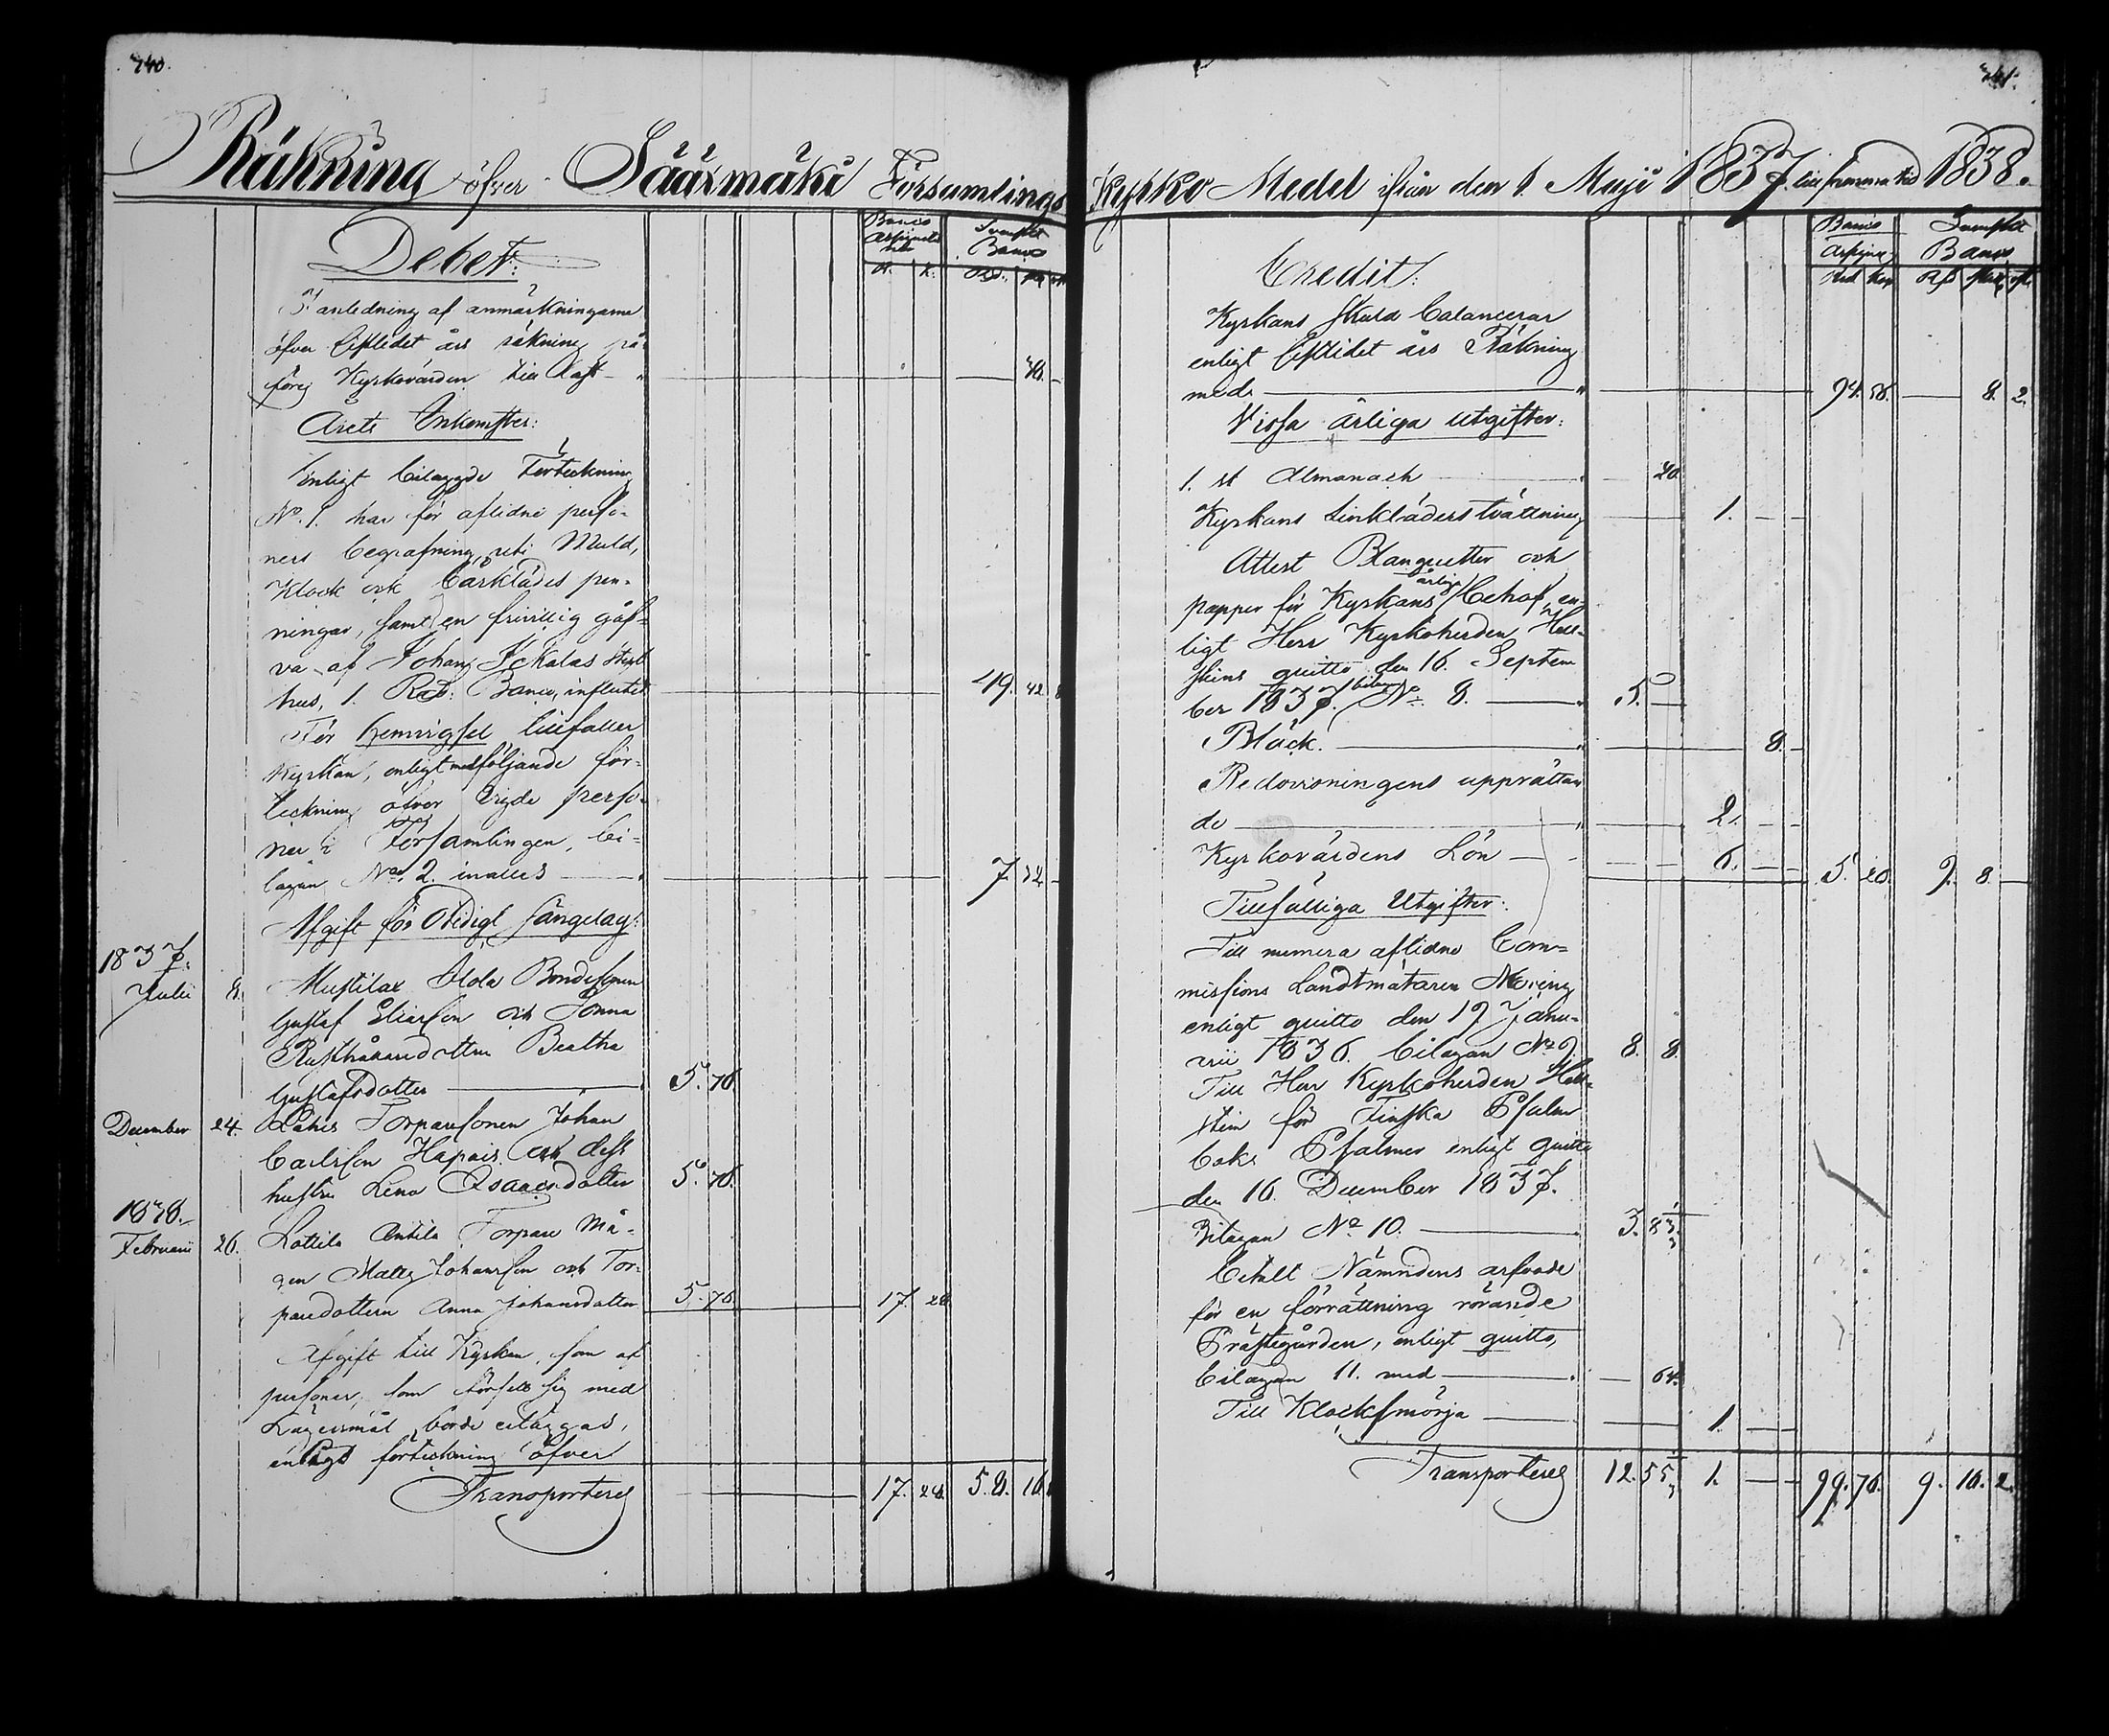 240.
Räkning öfver Sääxmäki Församlings
Debet:
Banco Assignationer
Svenskt Banco
R. k. Rd.
I anledning af anmärkningarne
öfver sistlidet års räkning på-
föres Kyrkovärden till Last 
Årets Inkomster:
Enligt bilagde Förteckning
No. 1. har för aflidne perso-
ners begrafning, uti Muld,
Klock och bårklädes pen-
ningar, samt en frivillig gåf-
va af Johan
hus, 1. Rd: Banco, influtit 49. 42.
För Hemvigsel tillfaller
Kyrkan, enligt medföljande för-
teckning öfver vigde perso-
ner i Församlingen, bi-
lagan No. 2. inalles 7. 32.
Afgift för Otidigt sängelag:
1837.
Julii 8. Mustilax Alola Bondesonen
Gustaf Eliasson och
Rusthållaredottern Beatha
Gustafsdotter 5. 76.
December 24. Lahis Torparesonen Johan
Carlsson Hapois och dess
hustru Lena Isaacsdotter 5. 76.
1838.
Februarii 26. Lottila Anttila Torpare Må-
gen Matts Johansson och Tor-
paredottern Anna Johansdotter 5. 76. 17. 28.
Afgift till Kyrkan, som af
personer, som försett sig med
Lägersmål borde erläggas,
enligt förteckning öfver
Transporteres 17. 28. 58. 16.
241.
Kyrko Medel ifrån den 1. Maji 1837. till samma tid 1838.
Credit:
Banco Assigna:
Svenskt Banco
Rub. Kop. Rd sk.
Kyrkans skuld balancerar
enligt sistlidet års Räkning
med 94. 56. 8. 2.
Vissa årliga Utgifter:
1. st Almanach 20.
Kyrkans Linkläders tvättning 1.
Attest Blanquetter och
papper för Kyrkans årliga behof, en-
ligt Herr Kyrkoherden Hell-
steins quitto den 16. Septem
ber 1837. bilagan No. 8. 5.
Bläck. 8.
Redovisningens upprättan
de 2.
Kyrkovärdens Lön 6. 5. 20. 9. 8.
Tillfälliga Utgifter:
Till numera aflidne Com-
missions Landtmätaren
enligt quitto den 19 Janu-
arii 1836. bilagan No 9. 8. 8.
Till Herr Kyrkoherden Hell-
stein för Finska Psalm
boks Psalmer enligt quitto
den 16. December 1837.
Bilagan No 10. 3. 83 1/3
Betalt Nämndens arfvode
för en förrättning rörande
Prästegården, enligt quitto,
bilagan 11. med 64.
Till Klocksmörja 1.
Transporteres 12. 55 1/3 1. 99. 76. 9. 16. 2.